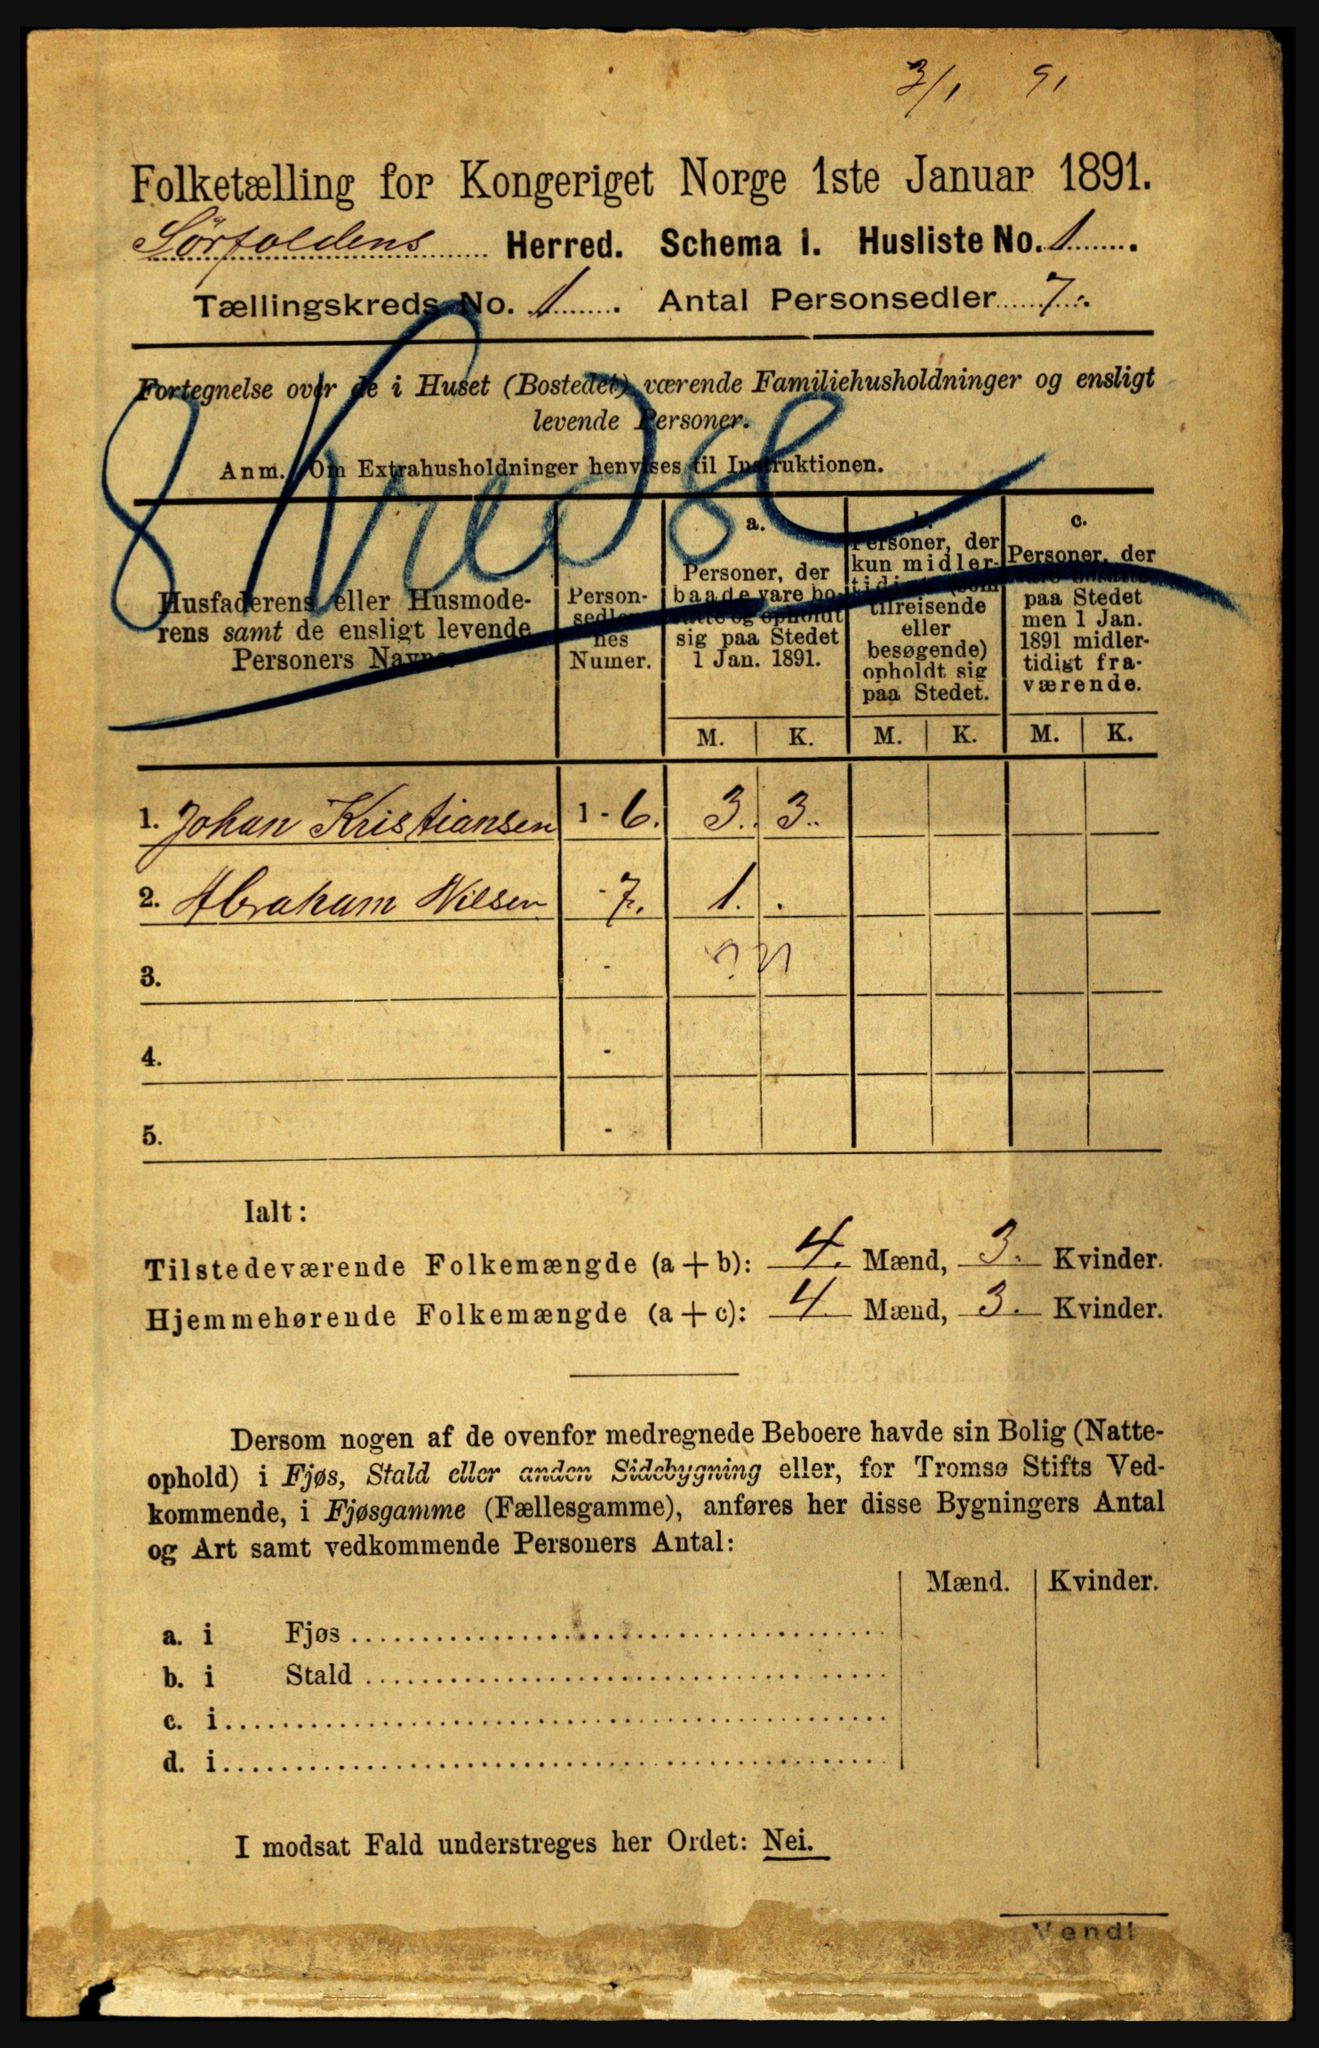 3/1 91
Folketælling for Kongeriget Norge 1ste Januar 1891.
Sørfoldens Herred. Schema 1. Husliste No. 1.
Tællingskreds No. 1. Antal Personsedler 7.
8 Kredse
Fortegnelse over de i Huset (Bostedet) værende Familiehusholdninger og ensligt
levende Personer.
Anm. Om Extrahusholdninger henvises til Instruktionen.
Husfaderens eller Husmode-
rens samt de ensligt levende
Personers Navne.
Person-
sedler-
nes
Numer.
a.
Personer, der
baade vare bo-
satte og opholdt
sig paa Stedet
1 Jan. 1891.
b.
Personer, der
kun midler-
tidigt (som
tilreisende
eller
besøgende)
opholdt sig
paa Stedet.
c.
Personer, der
vare bosatte
paa Stedet
men 1 Jan.
1891 midler-
tidigt fra-
værende.
M. K. M. K. M. K.
1. Johan Kristiansen 1 - 6. 3. 3.
2. Abraham Nilsen - 7. 1. .
3. -
4. -
5. -
Ialt:
Tilstedeværende Folkemængde (a + b): 4. Mænd, 3. Kvinder.
Hjemmehørende Folkemængde (a + c): 4. Mænd, 3. Kvinder.
Dersom nogen af de ovenfor medregnede Beboere havde sin Bolig (Natte-
ophold) i Fjøs, Stald eller anden Sidebygning eller, for Tromsø Stifts Ved-
kommende, i Fjøsgamme (Fællesgamme), anføres her disse Bygningers Antal
og Art samt vedkommende Personers Antal:
Mænd. Kvinder.
a. i Fjøs
b. i Stald
c. i
d. i
I modsat Fald understreges her Ordet: Nei.
Vend!